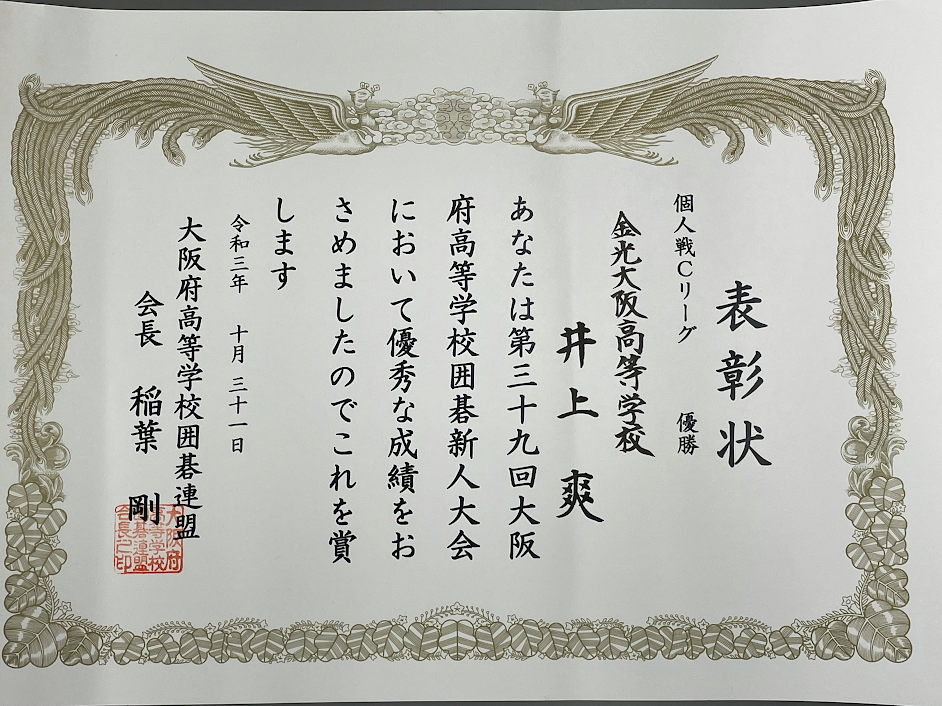 表彰状
個人戦Cリーグ 優勝
金光大阪高等学校
井上 爽
あなたは第三十九回大阪
府高等学校囲碁新人大会
において優秀な成績をお
さめましたのでこれを賞
します
令和三年 十月 三十一日
大阪府高等学校囲碁連盟
会長 稲葉 剛
大阪府
高等学校
囲碁連盟
会長之印